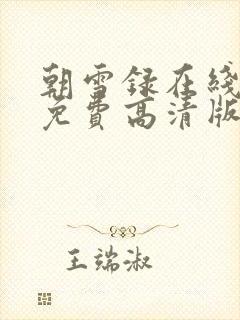 朝雪録在綫
免費高清版
王端淑